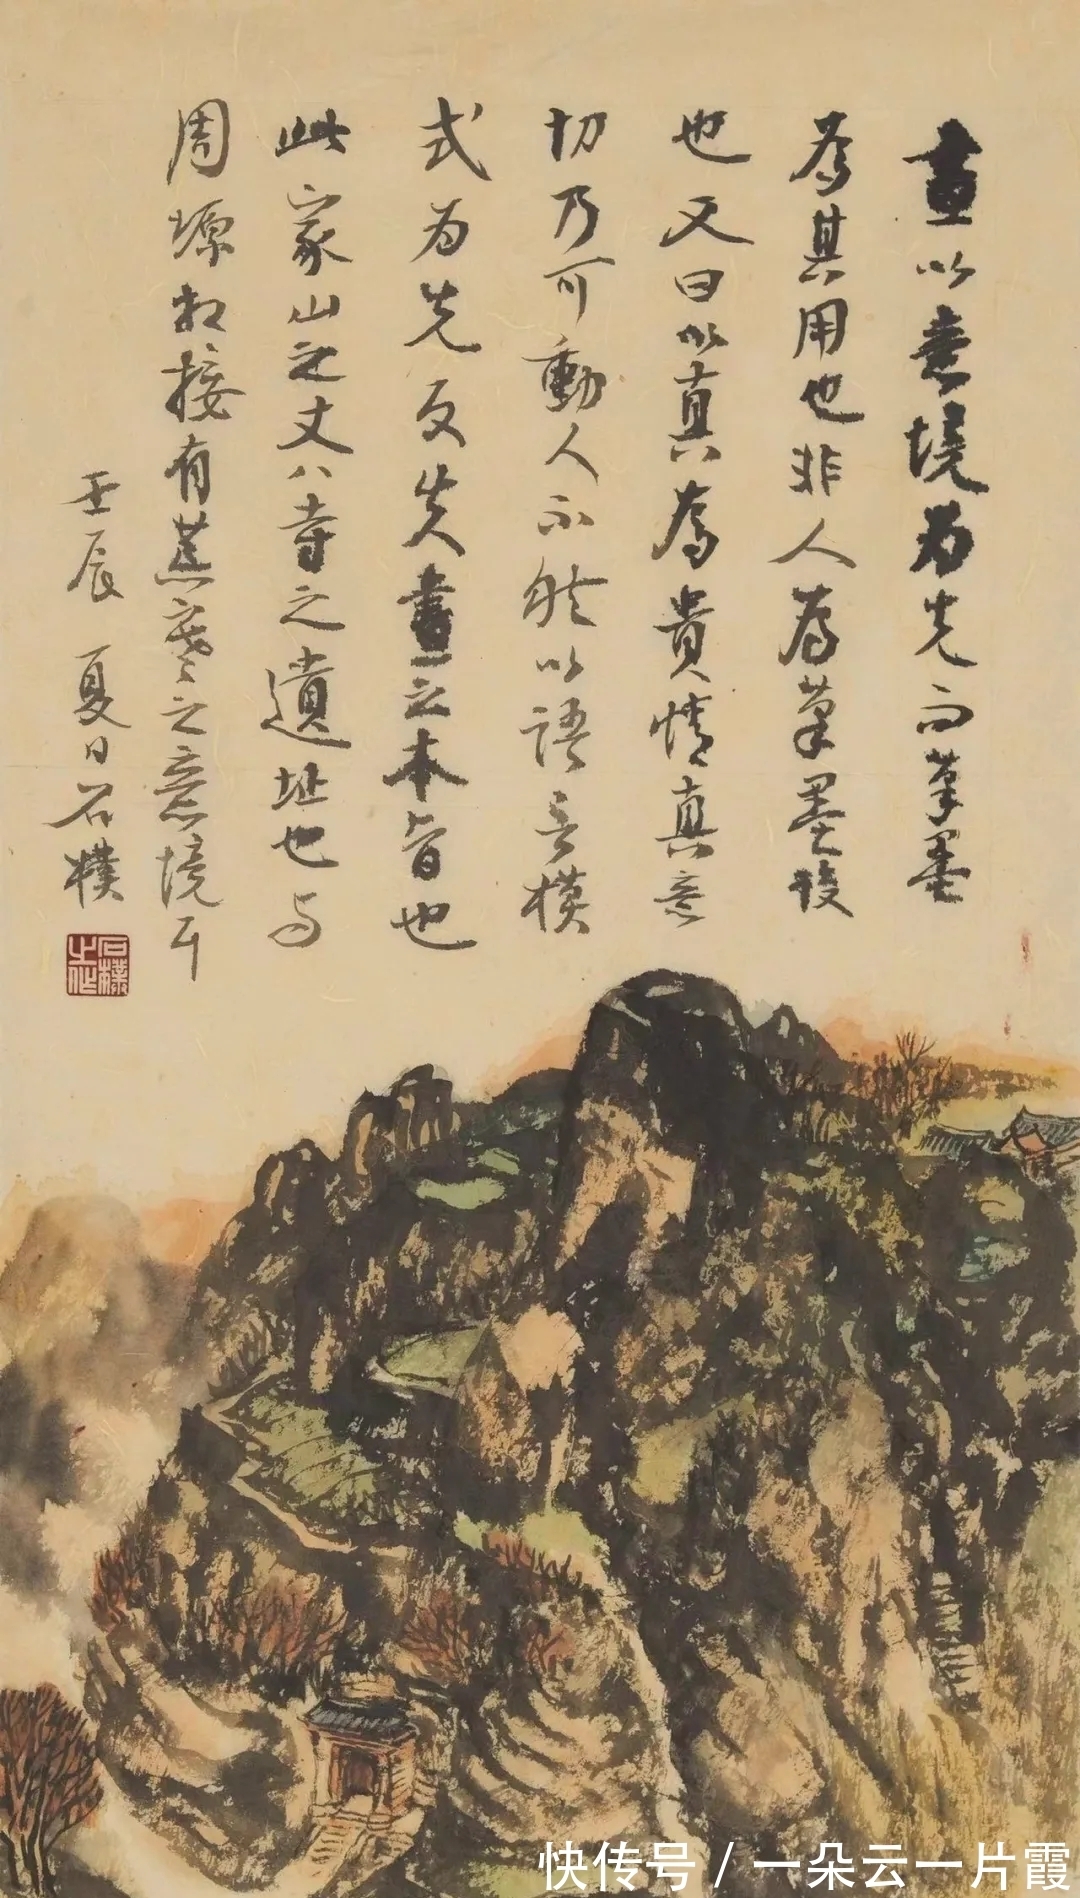 畫以意境为先而筆墨
為其用也非人為筆墨役
也又曰以真為貴情真意
切乃可動人不能以語言模
式为先反失畫之本旨也
此家山之丈八寺之遺址也与
周塬相接有蒼寥之意境耳
壬辰 夏日石樸
快传号 / 一朵云一片霞